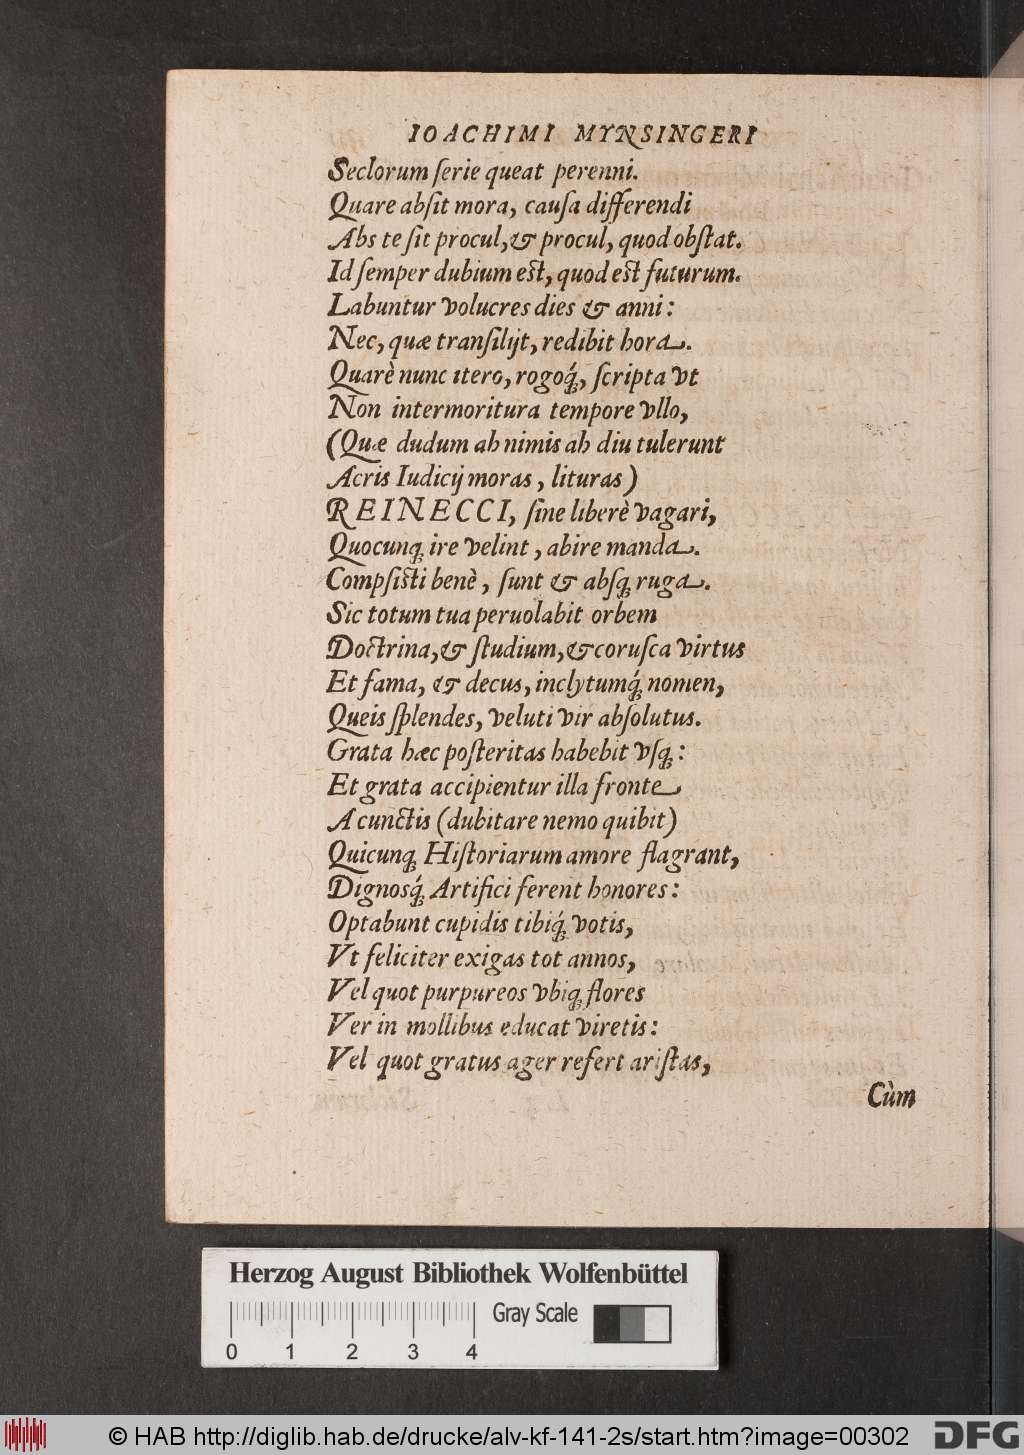 IOACHIMI MYNSINGERI
Seclorum ſerie queat perenni.
Quare abſit mora, cauſa differendi
Abs te ſit procul, & procul, quod obſtat.
Id ſemper dubium eſt, quod eſt futurum.
Labuntur volucres dies & anni:
Nec, quæ tranſilijt, redibit hora.
Quarè nunc itero, rogoq́;, ſcripta vt
Non intermoritura tempore vllo,
(Quæ dudum ab nimis ab diu tulerunt
Acris Iudicij moras, lituras)
REINECCI, ſine liberè vagari,
Quocunq; ire velint, abire manda.
Compſiſti benè, ſunt & abſq; ruga.
Sic totum tua peruolabit orbem
Doctrina, & ſtudium, & coruſca virtus
Et fama, & decus, inclytumq́; nomen,
Queis ſplendes, veluti vir abſolutus.
Grata hæc poſteritas habebit vſq;:
Et grata accipientur illa fronte
A cunctis (dubitare nemo quibit)
Quicunq; Hiſtoriarum amore flagrant,
Dignosq́; Artifici ferent honores:
Optabunt cupidis tibiq́; votis,
Vt feliciter exigas tot annos,
Vel quot purpureos vbiq; flores
Ver in mollibus educat viretis:
Vel quot gratus ager refert ariſtas,
Cùm
Herzog August Bibliothek Wolfenbüttel
Gray Scale
0 1 2 3 4
© HAB http://diglib.hab.de/drucke/alv-kf-141-2s/start.htm?image=00302
DFG